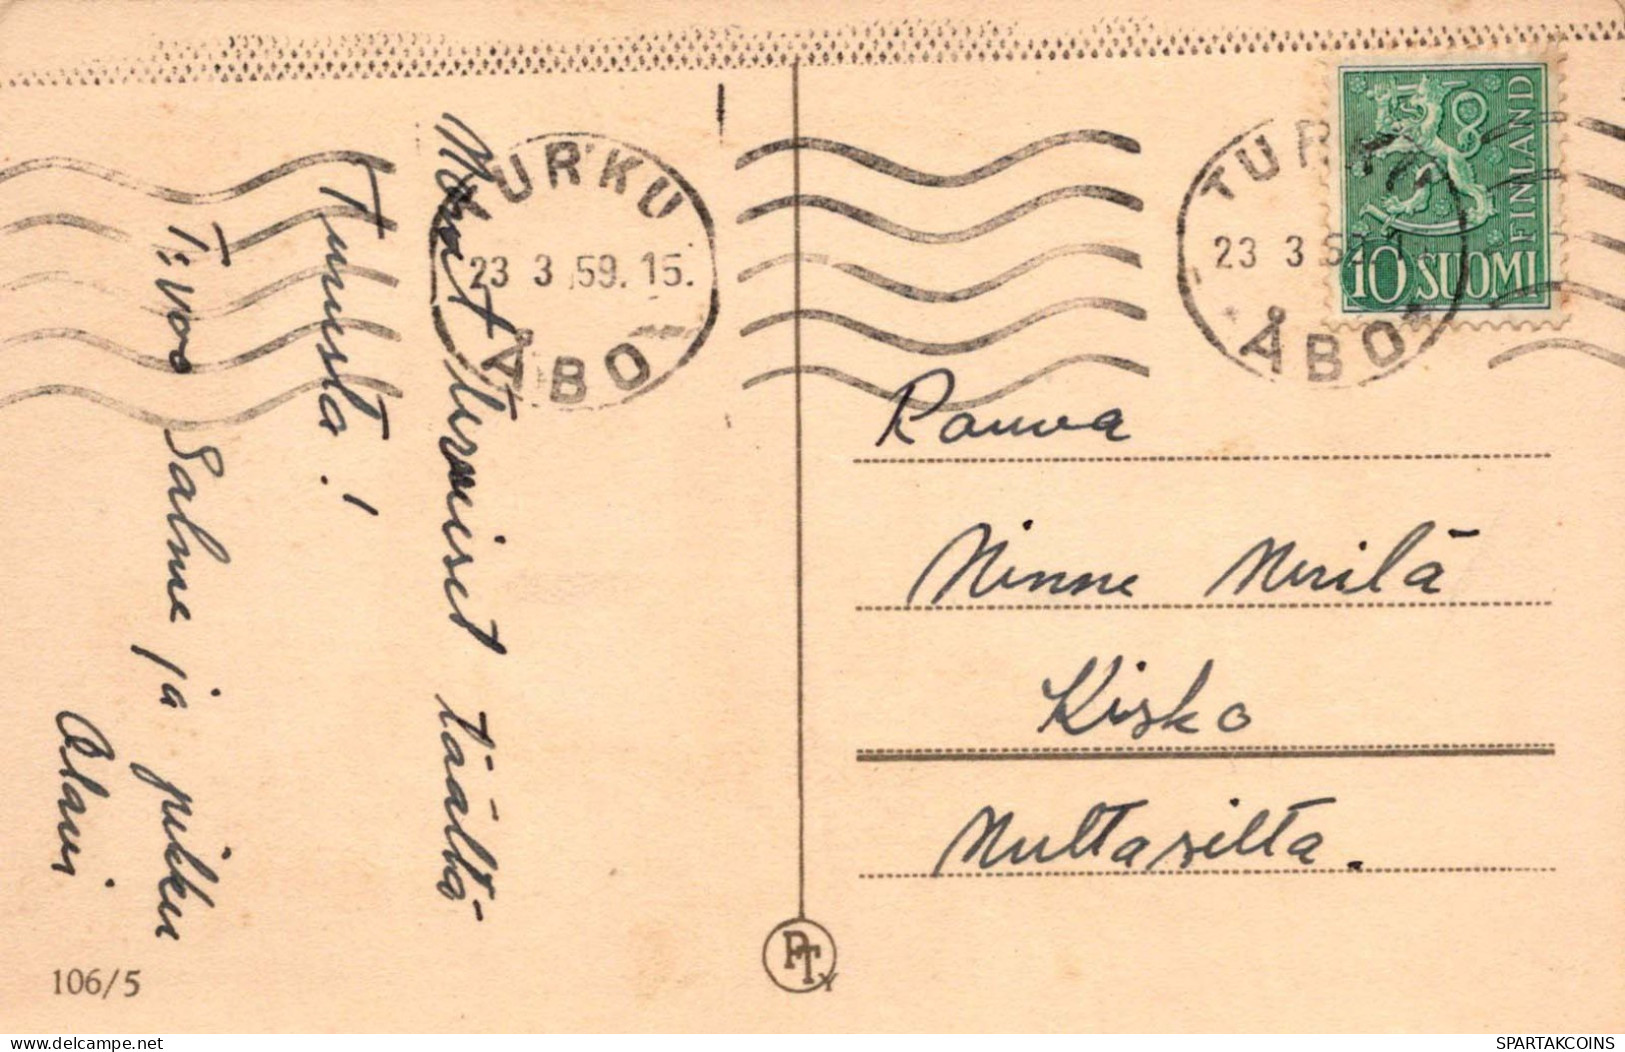 TURKU
23 3 59. 15.
ÅBO
TURKU
23 3
ÅBO
FINLAND
10 SUOMI
terveiset täältä
Turusta!
T: voo Salme ja pikku
Olavi
Rouva
Minne
Kisko
106/5
PTY
www.delcampe.net
SPARTAKCOINS